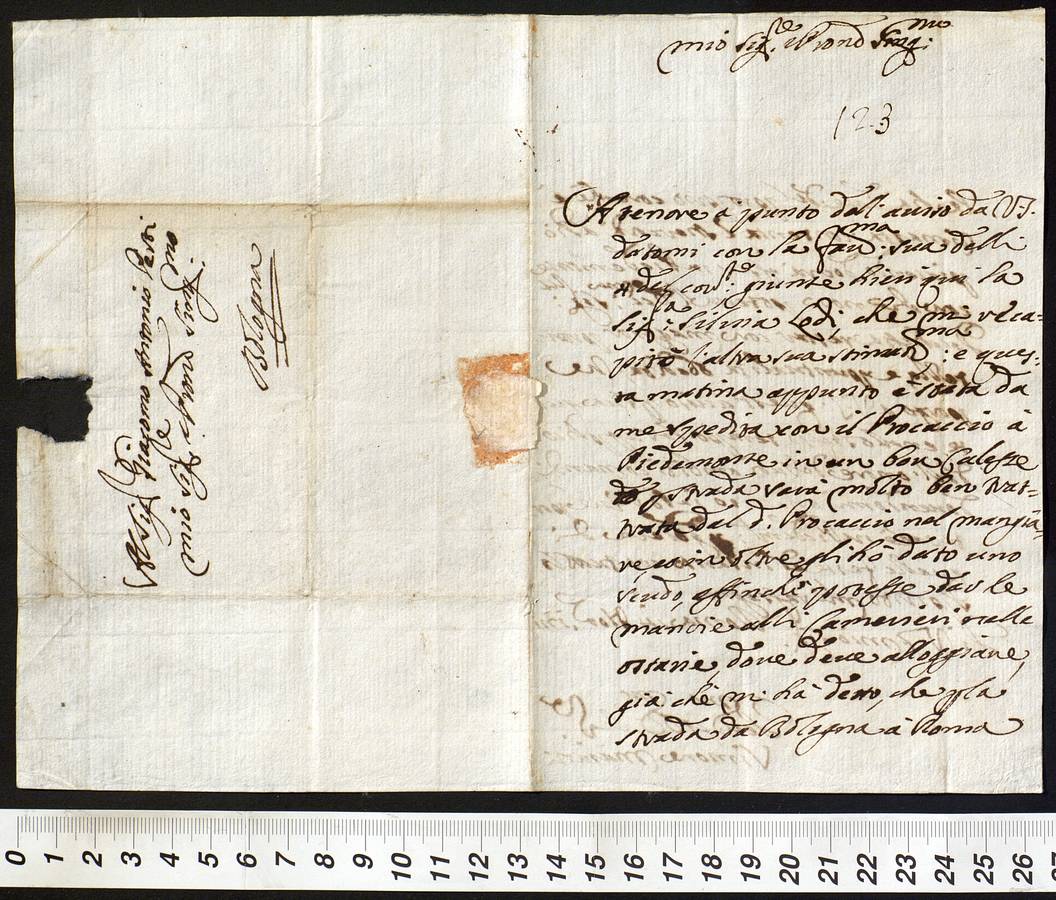 Al Sig.re Giacomo Antonio Perti
mio Sig.re e Pron Sing.mo
Bologna
mio Sig.re e Pron Sing.mo
123
A tenore à punto dal' auiso da VS.
datomi con la sua delli
4 del cor.te giunse hieri qui la
Sig.ra Siluia Lodi, che mi reca-
pitò l'altra sua stimat.ma: e ques-
ta matina appunto è stata da
me spedita con il Procaccio à
Piedimonte in un bon Calesse
e p strada sarà molto ben trat-
tata dal d. Procaccio nel mangia-
re, et in oltre gli hò dato uno
scudo, affinche potesse dar le
mancie alli Camerieri nelle
ostarie, doue deue alloggiare,
già che mi hà detto, che p la
strada da Bologna à Roma